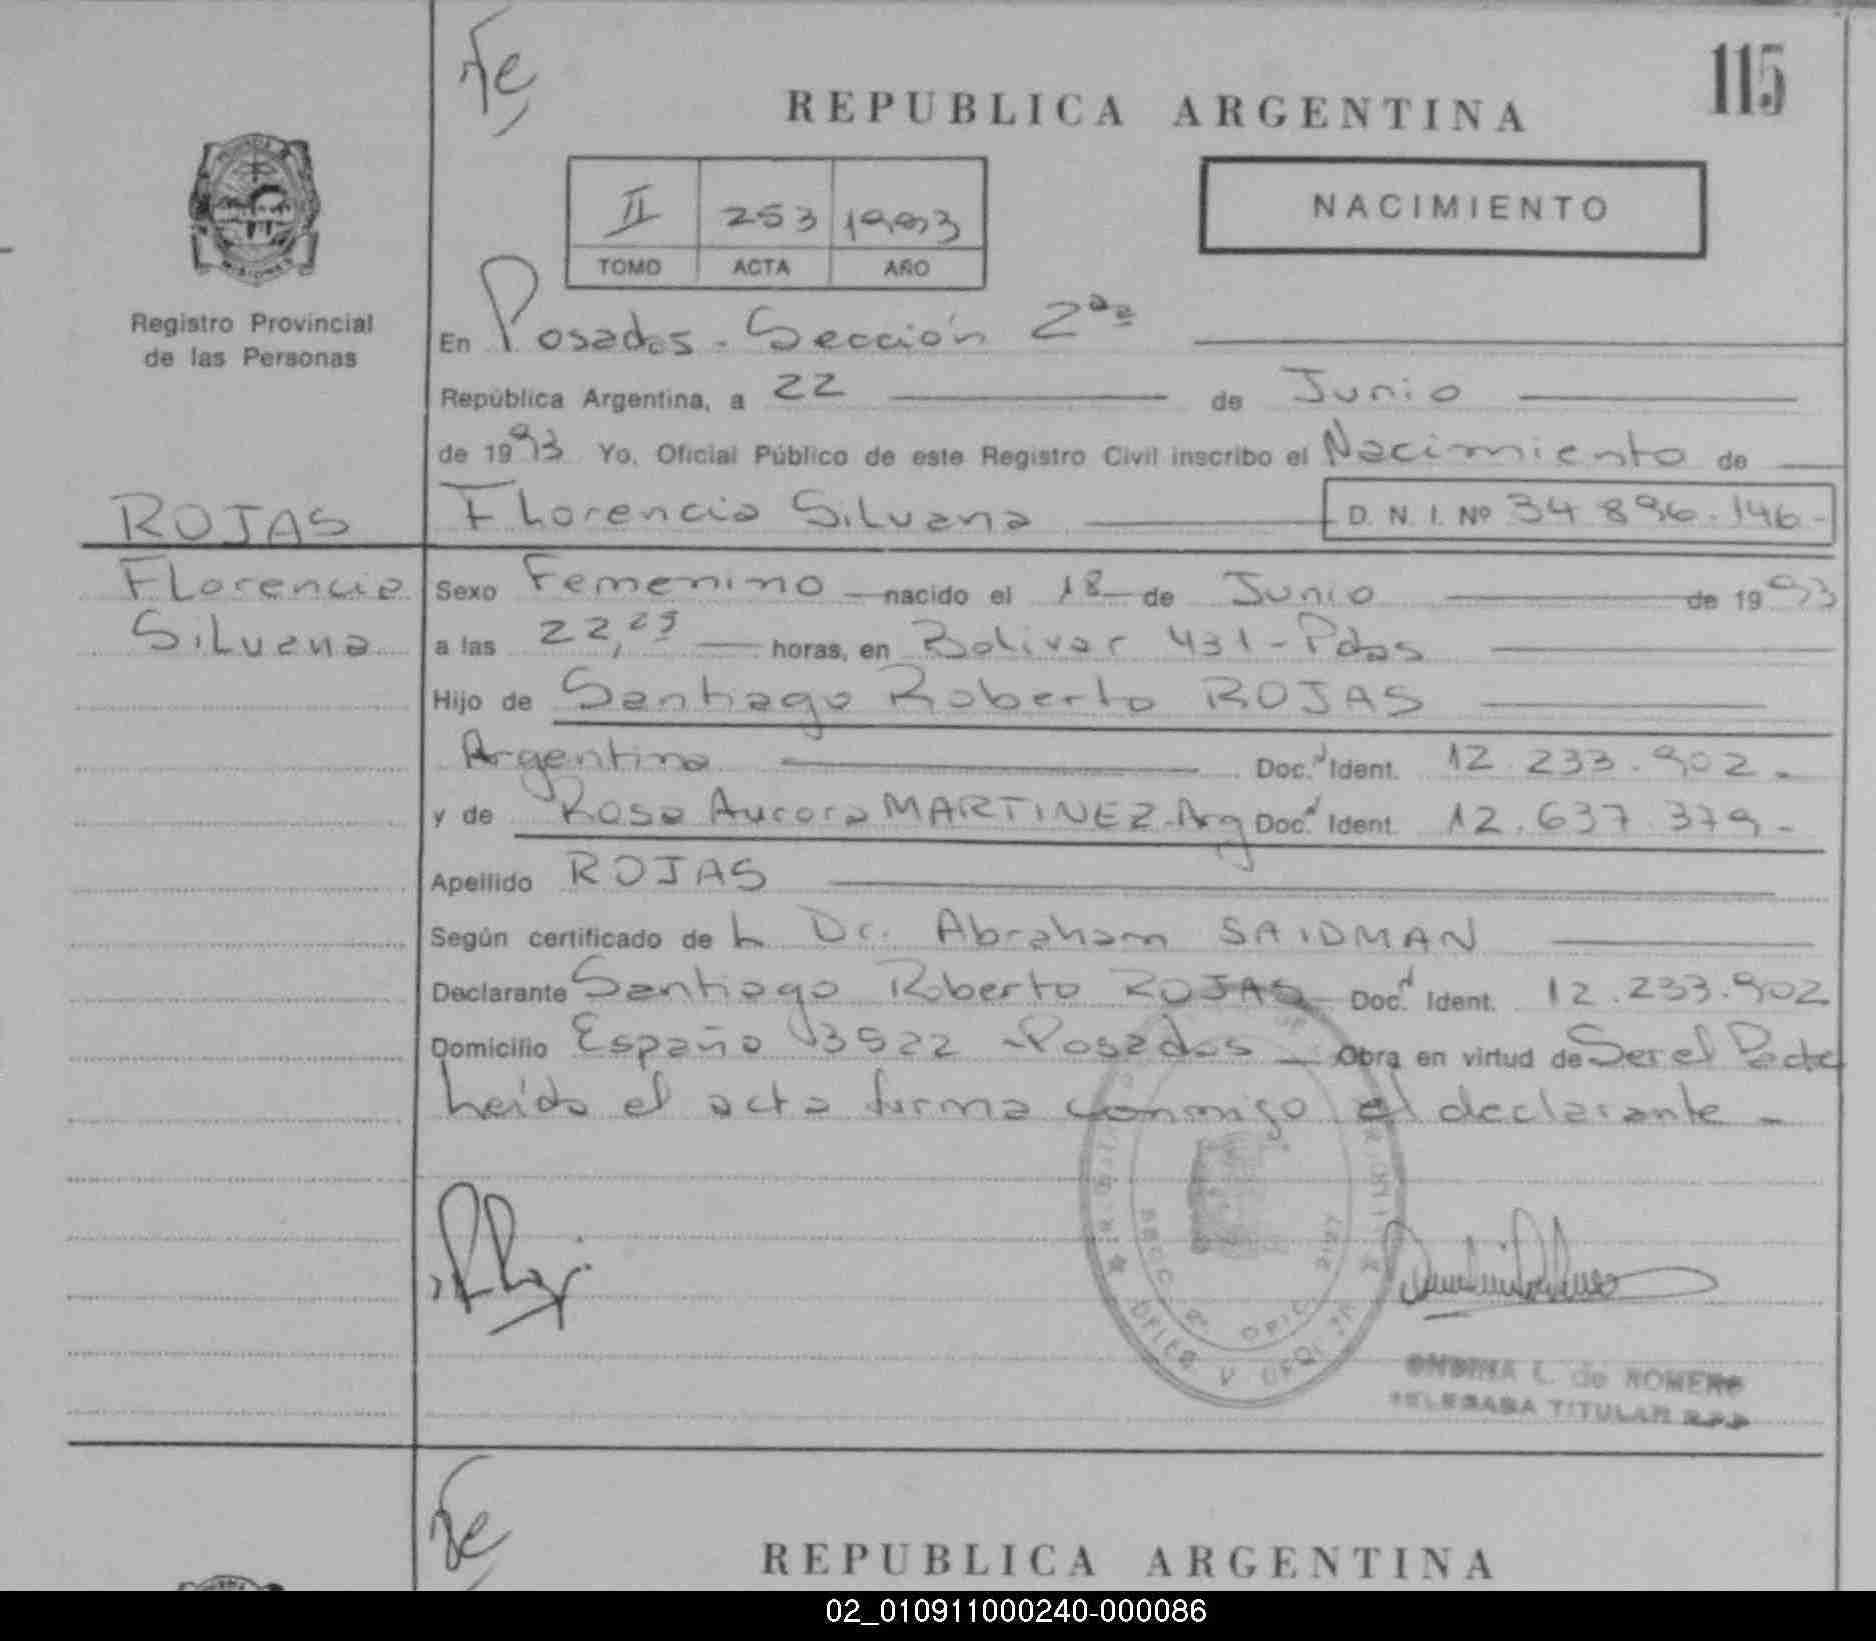 Fe
115
REPUBLICA ARGENTINA
II 253 1993
TOMO ACTA AÑO
NACIMIENTO
Registro Provincial
de las Personas
En Posadas - Sección 2da
República Argentina, a 22 de Junio
de 1993 Yo, Oficial Público de este Registro Civil inscribo el Nacimiento de
ROJAS
Florencia Silvana D. N. I. Nº 34 896.146-
Florencia
Silvana
Sexo Femenino nacido el 18 de Junio de 1993
a las 22,29 horas, en Bolivar 431 - Pdas
Hijo de Santiago Roberto ROJAS
Argentina Doc.d Ident. 12.233.902.
y de Rosa Aurora MARTINEZ-Arg Doc.d Ident. 12.637.379-
Apellido ROJAS
Según certificado de L Dr. Abraham SAIDMAN
Declarante Santiago Roberto ROJAS Doc.d Ident. 12.233.902
Domicilio España 3522 - Posadas - Obra en virtud de Ser el Padre
Leida el acta firma conmigo el declarante -
SECC 2ª OFIC 2127
ONDINA L. de ROMERO
DELEGADA TITULAR R.P.P
Fe
REPUBLICA ARGENTINA
02_010911000240-000086